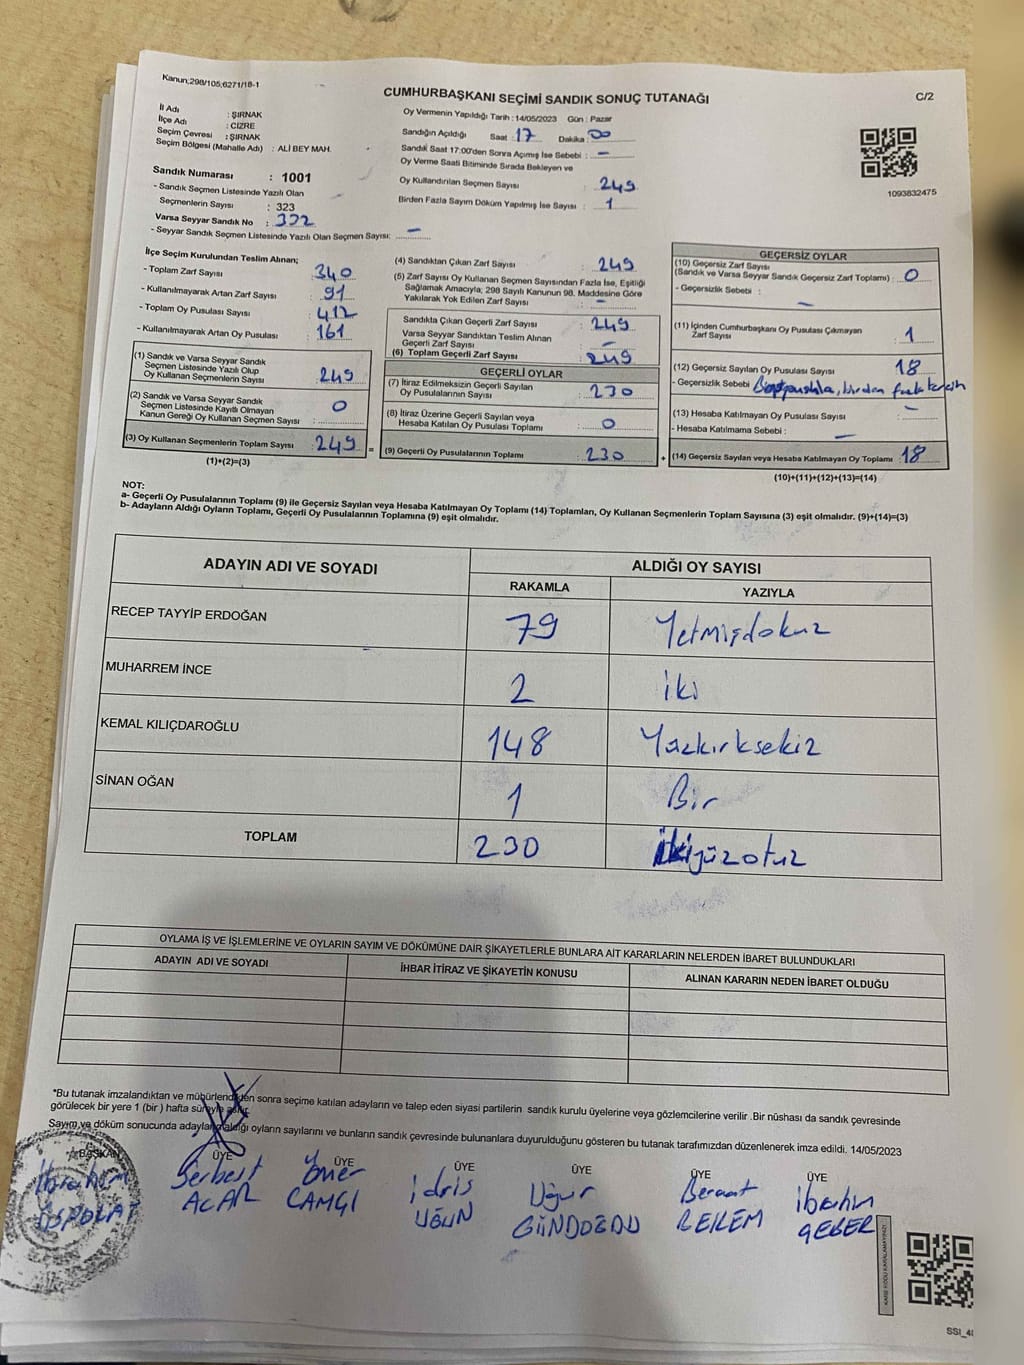 Kanun;298/105;6271/18-1
CUMHURBAŞKANI SEÇİMİ SANDIK SONUÇ TUTANAĞI
C/2
İl Adı : ŞIRNAK
İlçe Adı : CİZRE
Seçim Çevresi : ŞIRNAK
Seçim Bölgesi (Mahalle Adı) : ALİ BEY MAH.
Sandık Numarası : 1001
- Sandık Seçmen Listesinde Yazılı Olan
Seçmenlerin Sayısı : 323
Varsa Seyyar Sandık No : 332
- Seyyar Sandık Seçmen Listesinde Yazılı Olan Seçmen Sayısı: –
Oy Vermenin Yapıldığı Tarih : 14/05/2023 Gün : Pazar
Sandığın Açıldığı Saat : 17 Dakika : 00
Sandık Saat 17:00'den Sonra Açımış İse Sebebi : –
Oy Verme Saati Bitiminde Sırada Bekleyen ve
Oy Kullandırılan Seçmen Sayısı : 249
Birden Fazla Sayım Döküm Yapılmış İse Sayısı : 1
1093832475
İlçe Seçim Kurulundan Teslim Alınan;
- Toplam Zarf Sayısı : 340
- Kullanılmayarak Artan Zarf Sayısı : 91
- Toplam Oy Pusulası Sayısı : 412
- Kullanılmayarak Artan Oy Pusulası : 161
(1) Sandık ve Varsa Seyyar Sandık
Seçmen Listesinde Yazılı Olup
Oy Kullanan Seçmenlerin Sayısı : 249
(2) Sandık ve Varsa Seyyar Sandık
Seçmen Listesinde Kayıtlı Olmayan
Kanun Gereği Oy Kullanan Seçmen Sayısı : 0
(3) Oy Kullanan Seçmenlerin Toplam Sayısı : 249 =
(1)+(2)=(3)
(4) Sandıktan Çıkan Zarf Sayısı : 249
(5) Zarf Sayısı Oy Kullanan Seçmen Sayısından Fazla İse, Eşitliği
Sağlamak Amacıyla; 298 Sayılı Kanunun 98. Maddesine Göre
Yakılarak Yok Edilen Zarf Sayısı : –
Sandıkta Çıkan Geçerli Zarf Sayısı : 249
Varsa Seyyar Sandıktan Teslim Alınan
Geçerli Zarf Sayısı : –
(6) Toplam Geçerli Zarf Sayısı : 249
GEÇERLİ OYLAR
(7) İtiraz Edilmeksizin Geçerli Sayılan
Oy Pusulasının Sayısı : 230
(8) İtiraz Üzerine Geçerli Sayılan veya
Hesaba Katılan Oy Pusulası Toplamı : 0
(9) Geçerli Oy Pusulalarının Toplamı : 230 +
GEÇERSİZ OYLAR
(10) Geçersiz Zarf Sayısı
(Sandık ve Varsa Seyyar Sandık Geçersiz Zarf Toplamı) : 0
- Geçersizlik Sebebi : –
(11) İçinden Cumhurbaşkanı Oy Pusulası Çıkmayan
Zarf Sayısı : 1
(12) Geçersiz Sayılan Oy Pusulası Sayısı : 18
- Geçersizlik Sebebi birden fazla tercih
(13) Hesaba Katılmayan Oy Pusulası Sayısı : –
- Hesaba Katılmama Sebebi : –
(14) Geçersiz Sayılan veya Hesaba Katılmayan Oy Toplamı : 18
(10)+(11)+(12)+(13)=(14)
NOT:
a- Geçerli Oy Pusulalarının Toplamı (9) ile Geçersiz Sayılan veya Hesaba Katılmayan Oy Toplamı (14) Toplamları, Oy Kullanan Seçmenlerin Toplam Sayısına (3) eşit olmalıdır. (9)+(14)=(3)
b- Adayların Aldığı Oyların Toplamı, Geçerli Oy Pusulalarının Toplamına (9) eşit olmalıdır.
ADAYIN ADI VE SOYADI
ALDIĞI OY SAYISI
RAKAMLA YAZIYLA
RECEP TAYYİP ERDOĞAN 79 Yetmişdokuz
MUHARREM İNCE 2 iki
KEMAL KILIÇDAROĞLU 148 Yüzkırksekiz
SİNAN OĞAN 1 Bir
TOPLAM 230 ikiyüzotuz
OYLAMA İŞ VE İŞLEMLERİNE VE OYLARIN SAYIM VE DÖKÜMÜNE DAİR ŞİKAYETLERLE BUNLARA AİT KARARLARIN NELERDEN İBARET BULUNDUKLARI
ADAYIN ADI VE SOYADI İHBAR İTİRAZ VE ŞİKAYETİN KONUSU ALINAN KARARIN NEDEN İBARET OLDUĞU
*Bu tutanak imzalandıktan ve mühürlendikten sonra seçime katılan adayların ve talep eden siyasi partilerin sandık kurulu üyelerine veya gözlemcilerine verilir .Bir nüshası da sandık çevresinde
görülecek bir yere 1 (bir ) hafta süreyle asılır.
Sayım ve döküm sonucunda adayların aldığı oyların sayılarını ve bunların sandık çevresinde bulunanlara duyurulduğunu gösteren bu tutanak tarafımızdan düzenlenerek imza edildi. 14/05/2023
BAŞKAN ÜYE ÜYE ÜYE ÜYE ÜYE ÜYE
İbrahim Serbest Ömer idris Uğur Beraat ibrahim
ACAR CAMGI UĞUN GÜNDOĞDU GEBER
SSI_4